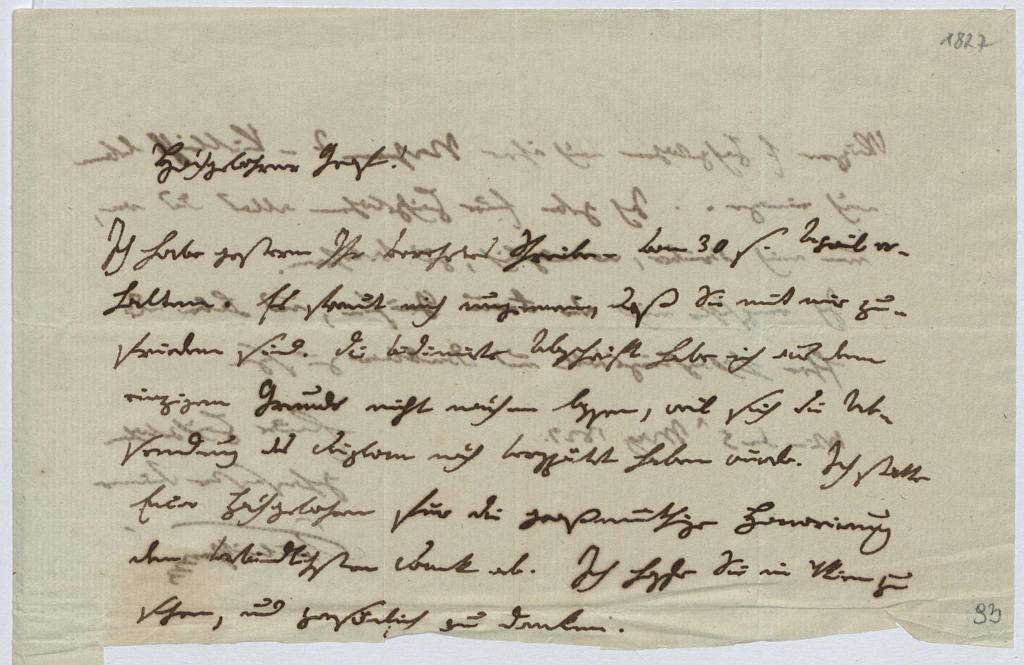 1827
Hochgelehrter Graf!
Ich habe gestern Ihr verehrtes Schreiben vom 30 April er-
halten. Es freut mich ungemein, daß Sie mit mir zu-
frieden sind. Die vidimirte Abschrift habe ich aus dem
einzigen Grunde nicht machen lassen, weil sich die Ab-
sendung des Diploms noch verspätet haben würde. Ich statte
Euer Hochgebohren für die großmüthige Honorirung
den verbindlichsten Dank ab. Ich hoffe Sie in Wien zu
sehen, und persönlich zu danken.
93